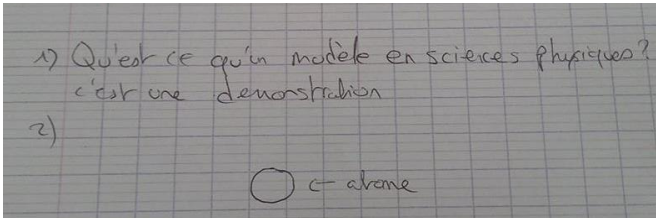 1) Qu'est ce qu'un modèle en sciences physiques?
c'est une demonstration
2)
← atome